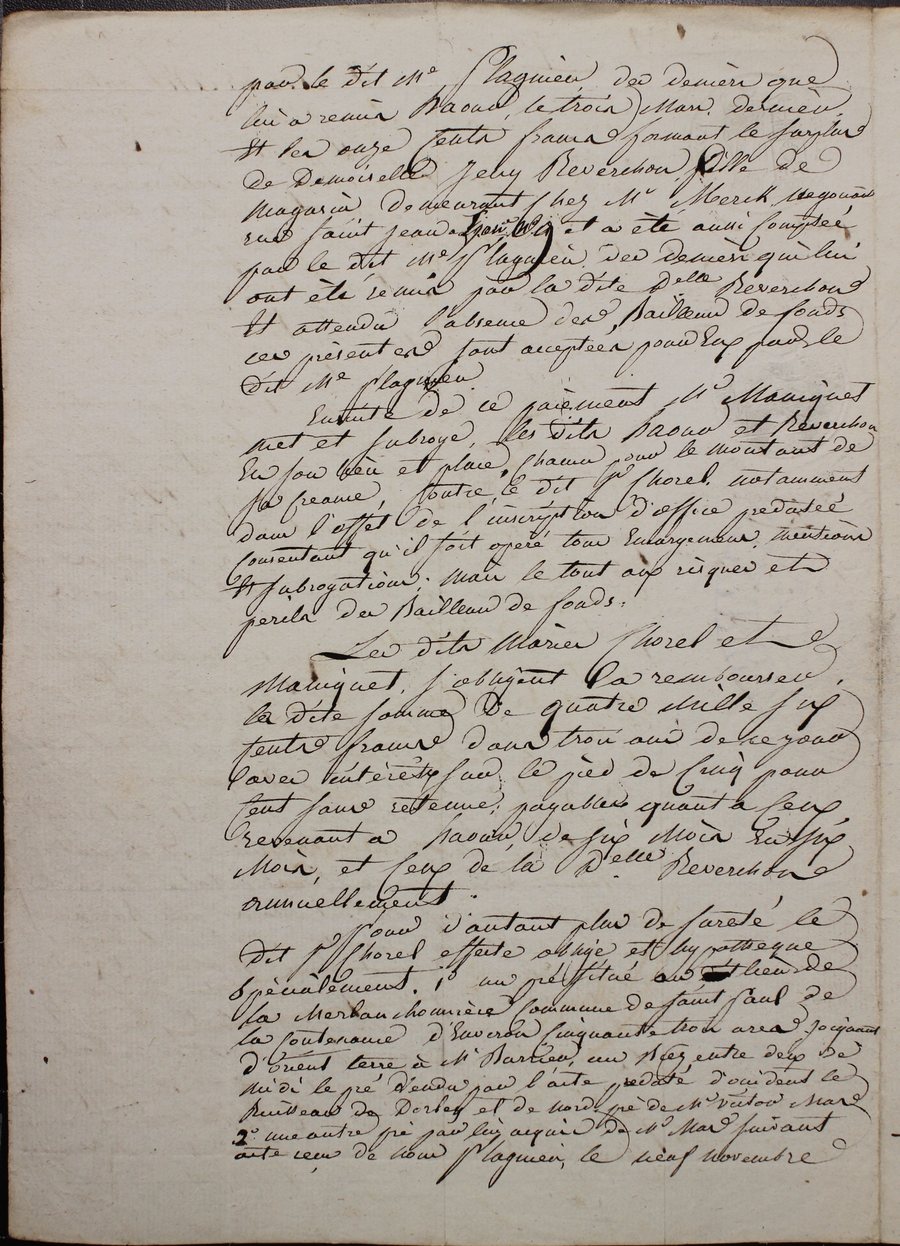 par le dit Me Plagnieu des deniers que
lui a remis Paour, le trois Mars dernier
Et les onze cents francs formant le surplus
de Demoiselle Jeny Reverchon fille de
magasin demeurant chez Mr Merck negociant
rue Saint Jean a Lyon et a été aussi comptée
par le dit Me Plagnieu des deniers qui lui
ont été remis par la dite Delle Reverchon
Et attendu l'absence des Bailleurs de fonds
ces présentes sont acceptées pour Eux par le
dit Me Plagnieu
Ensuite de ce paiement Mr Maniquet
met et subroge, les dits Paour et Reverchon
En son lieu et place, chacun pour le montant de
sa creance, contre le dit Sr Chorel, notamment
dans l'effet de l'inscription d'office predatée
Consentant qu'il soit operé tous Emargemens, mentions
Et subrogations; mais le tout aux risques et
perils des Bailleurs de fonds.
Les dits Mariés Chorel et
Maniquet, s'obligent la rembourser,
la dite somme De quatre Mille six
Cents francs dans trois ans de ce jour
avec intérêts sur le pied de Cinq pour
Cent sans retenue; payables quant a Ceux
revenant a Paour, de six Mois En six
Mois, et Ceux de la Delle Reverchon
annuellement.
Pour d'autant plus de sureté le
dit Sr Chorel affecte oblige et hypotheque
spécialement. 1o un pré situé au lieu de
la Merlanchonnière Commune de Saint Paul de
la Contenance d'Environ Cinquante trois ares joignant
d'orient terre à Mr Barrieu, un Biez entre deux de
midi le pré Vendu par l'acte predaté d'occident le
Ruisseau de Dorley et de nord pré de Mr Victor Mas
2o une autre pré par lui acquis de Mr Mas suivant
acte recu de nous Plagnieu, le neuf novembre